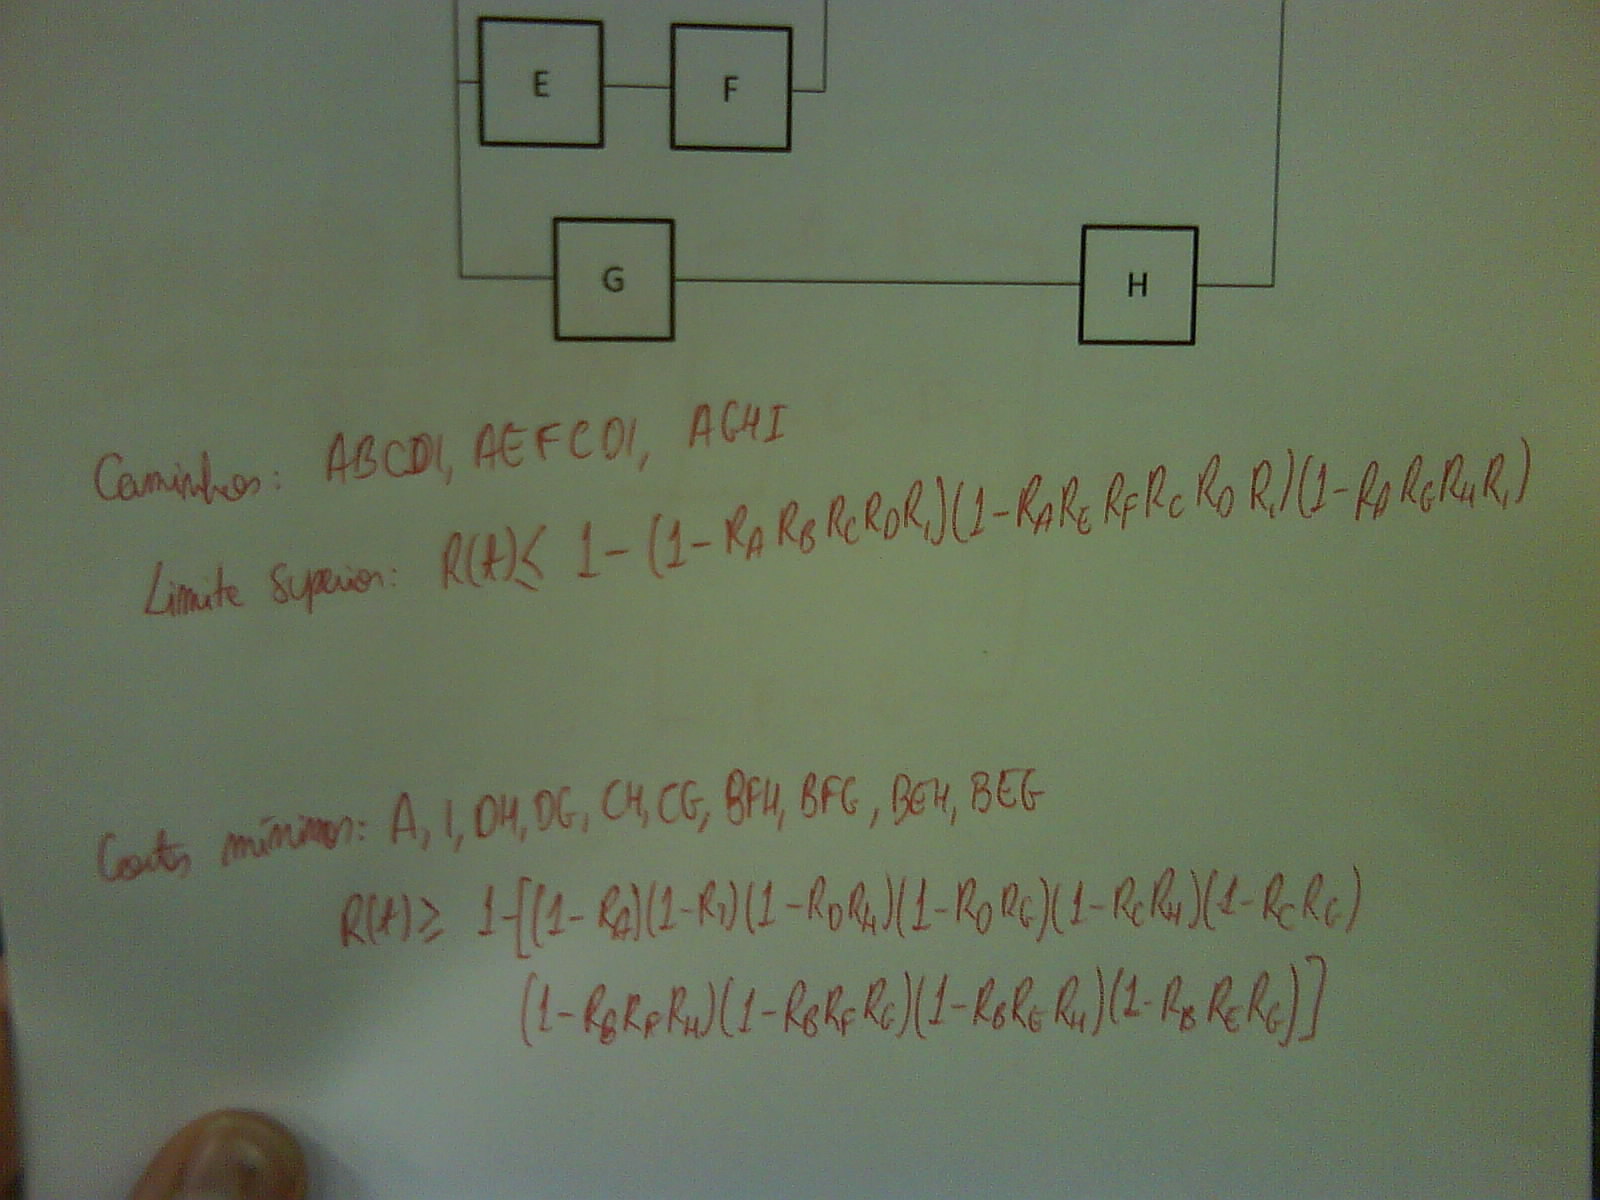 E F
G H
Caminhos: ABCDI, AEFCDI, AGHI
Limite Superior: R(t) ≤ 1 - (1 - R_A R_B R_C R_D R_I)(1 - R_A R_E R_F R_C R_D R_I)(1 - R_A R_G R_H R_I)
Cortes mínimos: A, I, DH, DG, CH, CG, BFH, BFG, BEH, BEG
R(t) ≥ 1 - [(1 - R_A)(1 - R_I)(1 - R_D R_H)(1 - R_D R_G)(1 - R_C R_H)(1 - R_C R_G)
(1 - R_B R_F R_H)(1 - R_B R_F R_G)(1 - R_B R_E R_H)(1 - R_B R_E R_G)]